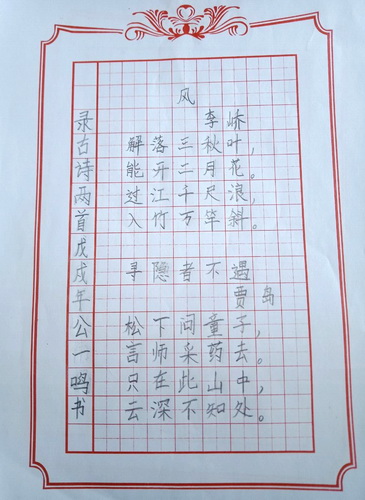 风
李峤
解落三秋叶，
能开二月花。
过江千尺浪，
入竹万竿斜。
寻隐者不遇
贾岛
松下问童子，
言师采药去。
只在此山中，
云深不知处。
录古诗两首戊戌年公一鸣书